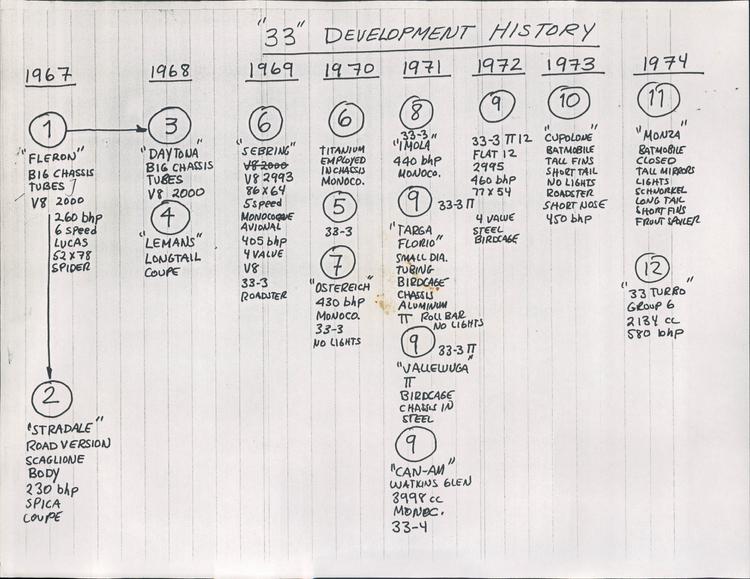 "33" DEVELOPMENT HISTORY
1967
1
"FLERON"
BIG CHASSIS
TUBES
V8 2000
260 bhp
6 speed
LUCAS
52x78
SPIDER
2
"STRADALE"
ROAD VERSION
SCAGLIONE
BODY
230 bhp
SPICA
COUPE
1968
3
"DAYTONA"
BIG CHASSIS
TUBES
V8 2000
4
"LEMANS"
LONGTAIL
COUPE
1969
6
"SEBRING"
V8 2000
V8 2993
86x64
5 speed
MONOCOQUE
AVIONAL
405 bhp
4 VALVE
V8
33-3
ROADSTER
1970
6
TITANIUM
EMPLOYED
IN CHASSIS
MONOCO.
5
33-3
7
"OSTEREICH"
430 bhp
MONOCO.
33-3
NO LIGHTS
1971
8
33-3
"IMOLA"
440 bhp
MONOCO.
9 33-3 TT
"TARGA
FLORIO"
SMALL DIA.
TUBING
BIRDCAGE
CHASSIS
ALUMINUM
TT ROLL BAR
NO LIGHTS
9 33-3 TT
"VALLELUNGA"
TT
BIRDCAGE
CHASSIS IN
STEEL
9
"CAN-AM"
WATKINS GLEN
3998 cc
MONOC.
33-4
1972
9
33-3 TT 12
FLAT 12
2995
460 bhp
77x54
4 VALVE
STEEL
BIRDCAGE
1973
10
"CUPOLONE"
BATMOBILE
TALL FINS
SHORT TAIL
NO LIGHTS
ROADSTER
SHORT NOSE
450 bhp
1974
11
"MONZA"
BATMOBILE
CLOSED
TALL MIRRORS
LIGHTS
SCHNORKEL
LONG TAIL
SHORT FINS
FRONT SPOILER
12
"33 TURBO"
GROUP 6
2134 cc
580 bhp